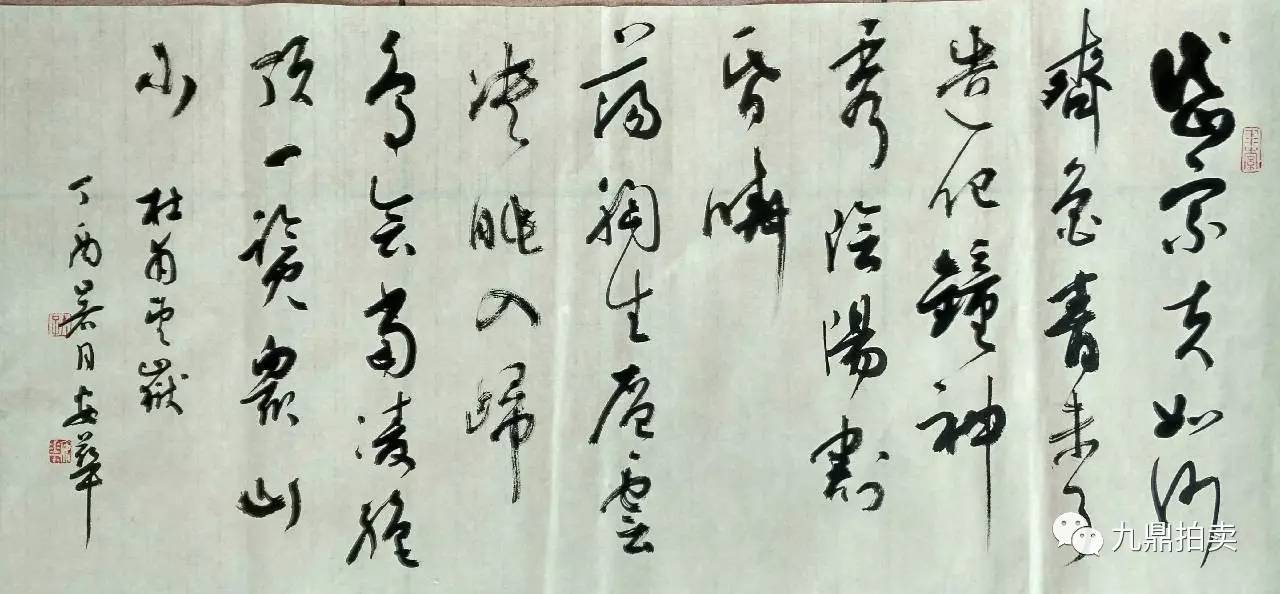 岱宗夫如何
齊魯青未了
造化鐘神
秀陰陽割
昏曉
蕩胸生層雲
決眦入歸
鳥會當凌絕
頂一覽衆山
小
杜甫望嶽
丁酉暑月安華
九鼎拍卖